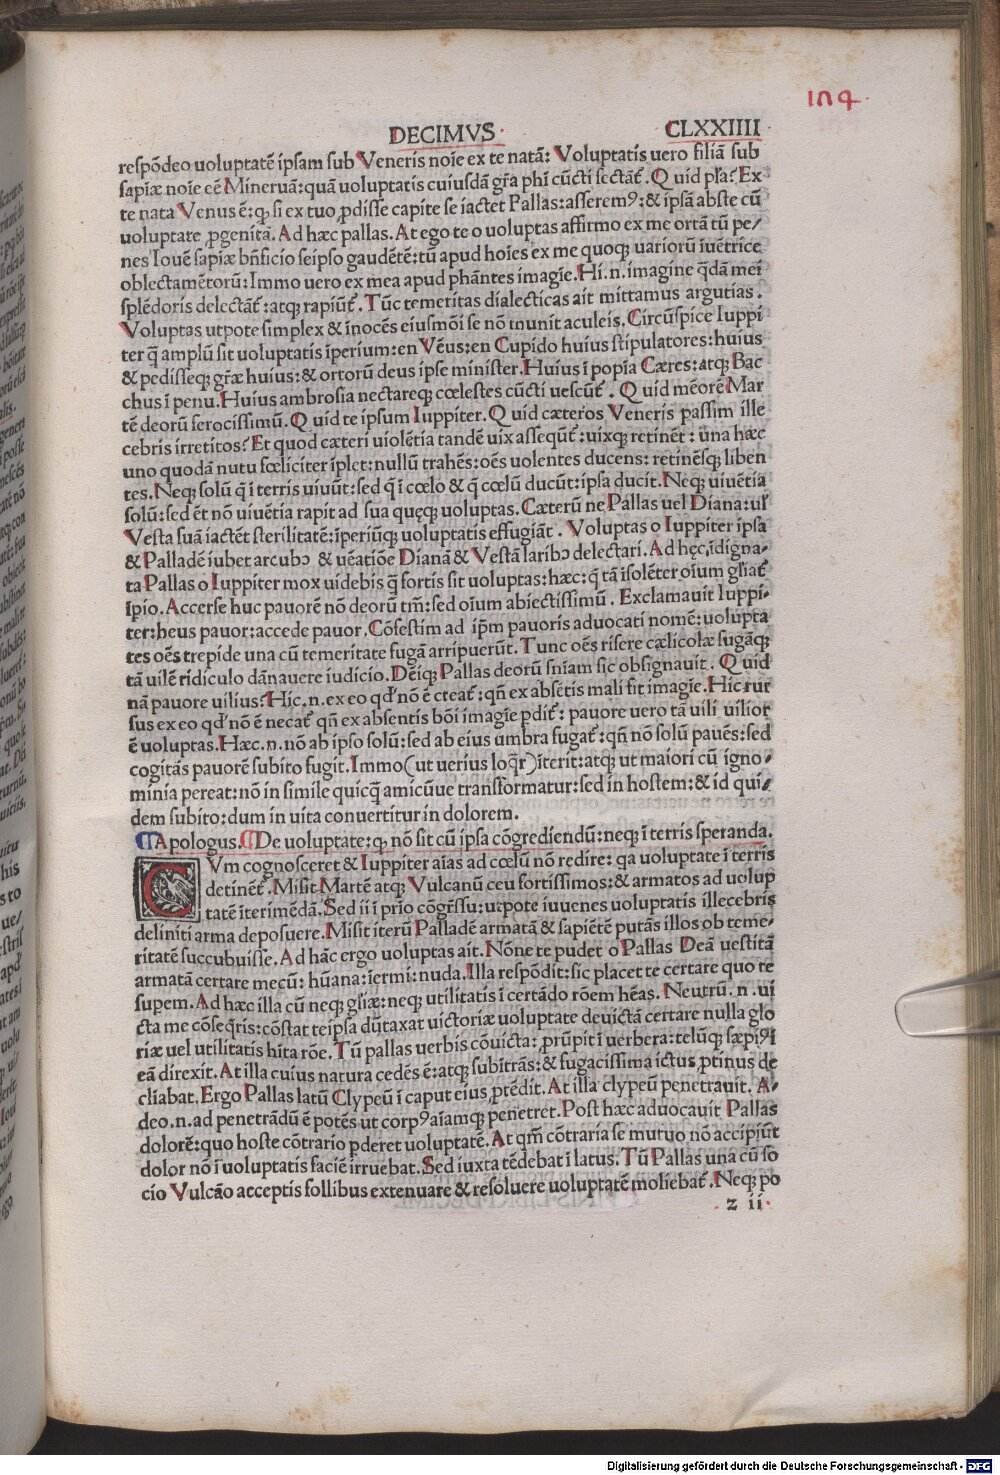 174
DECIMVS CLXXIIII
respõdeo uoluptatẽ ipsam sub Veneris noĩe ex te natã: Voluptatis uero filiã sub
sapiæ noĩe eẽ Mineruã: quã uoluptatis cuiusdã gr̃a phĩ cũcti sectãt̃. Quid pl̃a? Ex
te nata Venus ẽ: ꝙ si ex tuo ꝓdisse capite se iactet Pallas: asseremꝰ: & ipsã abste cũ
uoluptate ꝓgenitã. Ad hæc pallas. At ego te o uoluptas affirmo ex me ortã tũ pe/
nes Iouẽ sapiæ bñficio seipso gaudẽtẽ: tũ apud hoĩes ex me quoqꝫ uariorũ iuẽtrice
oblectamẽtorũ: Immo uero ex mea apud phãntes imagĩe. Hi .n. imagine q̃dã mei
splẽdoris delectãt̃: atqꝫ rapiũt̃. Tũc temeritas dialecticas ait mittamus argutias.
Voluptas utpote simplex & ĩnocẽs eiusmõi se nõ munit aculeis. Circũspice Iuppi
ter q̃ amplũ sit uoluptatis ĩperium: en Vẽus: en Cupido huius stipulatores: huius
& pedisseqꝫ gr̃æ huius: & ortorũ deus ipse minister. Huius ĩ popia Cæres: atqꝫ Bac
chus ĩ penu. Huius ambrosia nectareqꝫ cœlestes cũcti uescũt̃. Quid mẽorẽ Mar
tẽ deorũ ferocissimũ. Quid te ipsum Iuppiter. Quid cæteros Veneris passim ille
cebris irretitos? Et quod cæteri uiolẽtia tandẽ uix assequũt̃: uixqꝫ retinẽt: una hæc
uno quodã nutu fœliciter ĩplet: nullũ trahẽs: oẽs uolentes ducens: retinẽsqꝫ liben
tes. Neqꝫ solũ q̃ ĩ terris uiuũt: sed q̃ ĩ cœlo & q̃ cœlũ ducũt: ipsa ducit. Neqꝫ uiuẽtia
solũ: sed ẽt nõ uiuẽtia rapit ad sua quęqꝫ uoluptas. Cæterũ ne Pallas uel Diana: ul̃
Vesta suã iactẽt sterilitatẽ: ĩperiũqꝫ uoluptatis effugiãt. Voluptas o Iuppiter ipsa
& Palladẽ iubet arcubꝰ & uẽatiõe Dianã & Vestã laribꝰ delectari. Ad hęc, ĩdigna-
ta Pallas o Iuppiter mox uidebis q̃ fortis sit uoluptas: hæc: q̃ tã ĩsolẽter oĩum gl̃iat̃
ĩpio. Accerse huc pauorẽ nõ deorũ tm̃: sed oĩum abiectissimũ. Exclamauit Iuppi-
ter: heus pauor: accede pauor. Cõfestim ad ip̃m pauoris aduocati nomẽ: uolupta
tes oẽs trepide una cũ temeritate fugã arripuerũt. Tunc oẽs risere cælicolæ fugãqꝫ
tã uilẽ ridiculo dãnauere iudicio. Deĩqꝫ Pallas deorũ sniam sic obsignauit. Quid
nã pauore uilius? Hic .n. ex eo qd̃ nõ ẽ creat̃: qñ ex absẽtis mali fit imagĩe. Hic rur
sus ex eo qd̃ nõ ẽ necat̃ qñ ex absentis bõi imagĩe ꝑdit̃: pauore uero tã uili uilior
ẽ uoluptas. Hæc .n. nõ ab ipso solũ: sed ab eius umbra fugat̃: qñ nõ solũ pauẽs: sed
cogitãs pauorẽ subito fugit. Immo (ut uerius loq̃r) ĩterit: atqꝫ ut maiori cũ igno-
minia pereat: nõ in simile quicq̃ amicũue transformatur: sed in hostem: & id qui-
dem subito: dum in uita conuertitur in dolorem.
Apologus. De uoluptate: ꝙ nõ sit cũ ipsa cõgrediendũ: neqꝫ ĩ terris speranda.
CVm cognosceret & Iuppiter aĩas ad cœlũ nõ redire: qa uoluptate ĩ terris
detinẽt̃. Misit Martẽ atqꝫ Vulcanũ ceu fortissimos: & armatos ad uolup
tatẽ ĩterimẽdã. Sed ii ĩ prĩo cõgr̃ssu: utpote iuuenes uoluptatis illecebris
deliniti arma deposuere. Misit iterũ Palladẽ armatã & sapiẽtẽ putãs illos ob teme-
ritatẽ succubuisse. Ad hãc ergo uoluptas ait. Nõne te pudet o Pallas Deã uestitã
armatã certare mecũ: hũana: ĩermi: nuda. Illa respõdit: sic placet te certare quo te
supem. Ad hæc illa cũ neqꝫ gl̃iæ: neqꝫ utilitatis ĩ certãdo rõem hẽas. Neutrũ .n. ui
cta me cõseq̃ris: cõstat teipsa dũtaxat uictoriæ uoluptate deuictã certare nulla glo
riæ uel utilitatis hita rõe. Tũ pallas uerbis cõuicta: ꝓrũpit ĩ uerbera: telũqꝫ sæpiꝰ ĩ
eã direxit. At illa cuius natura cedẽs ẽ: atqꝫ subitrãs: & fugacissima ictus ꝓtinus de
cliabat. Ergo Pallas latũ Clypeũ ĩ caput eius ꝓtẽdit. At illa clypeũ penetrauit. A-
deo .n. ad penetrãdũ ẽ potẽs ut corpꝰ aĩamqꝫ penetret. Post hæc aduocauit Pallas
dolorẽ: quo hoste cõtrario ꝑderet uoluptatẽ. At qm̃ cõtraria se mutuo nõ accipiũt
dolor nõ ĩ uoluptatis faciẽ irruebat. Sed iuxta tẽdebat ĩ latus. Tũ Pallas una cũ so
cio Vulcão acceptis follibus extenuare & resoluere uoluptatẽ moliebat̃. Neqꝫ po
z ii
Digitalisierung gefördert durch die Deutsche Forschungsgemeinschaft - DFG